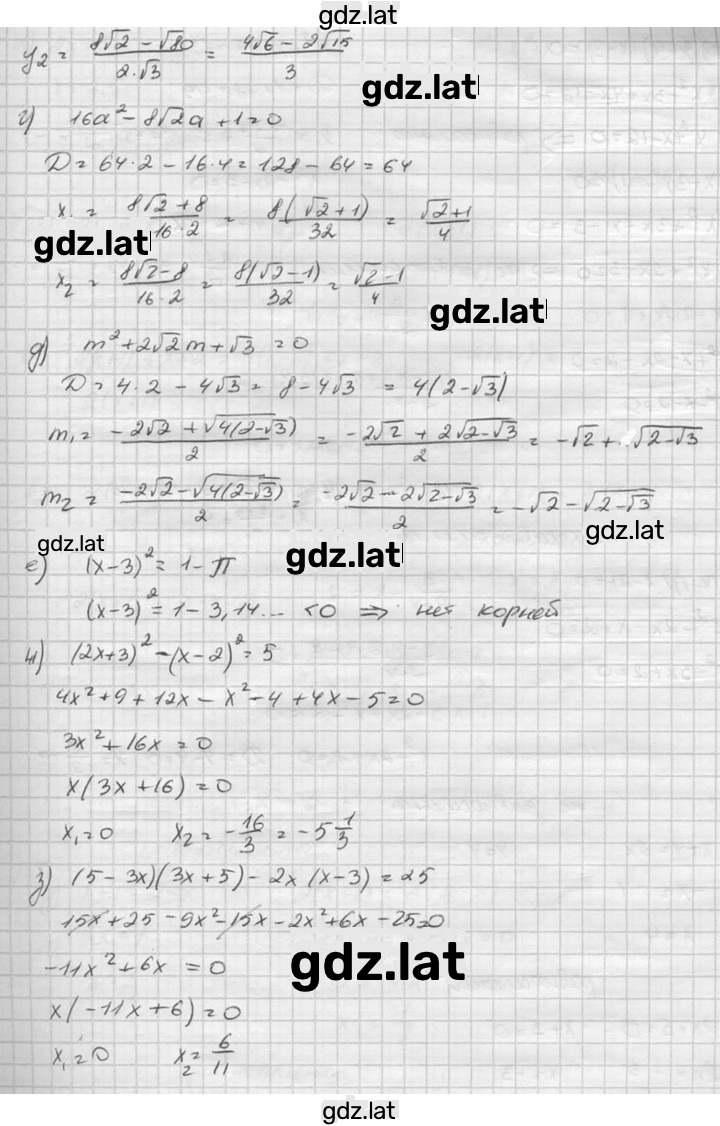 gdz.lat
y₂ = (8√2 − √80)/(2·√3) = (4√6 − 2√15)/3
gdz.lat
г) 16a² − 8√2a + 1 = 0
D = 64·2 − 16·4 = 128 − 64 = 64
x₁ = (8√2 + 8)/(16·2) = 8(√2 + 1)/32 = (√2 + 1)/4
gdz.lat
x₂ = (8√2 − 8)/(16·2) = 8(√2 − 1)/32 = (√2 − 1)/4
gdz.lat
д) m² + 2√2m + √3 = 0
D = 4·2 − 4√3 = 8 − 4√3 = 4(2 − √3)
m₁ = (−2√2 + √(4(2−√3)))/2 = (−2√2 + 2√(2−√3))/2 = −√2 + √(2−√3)
m₂ = (−2√2 − √(4(2−√3)))/2 = (−2√2 − 2√(2−√3))/2 = −√2 − √(2−√3)
gdz.lat
gdz.lat
gdz.lat
е) (x−3)² = 1 − π
(x−3)² = 1 − 3,14... <0 ⇒ нет корней
ж) (2x+3)² − (x−2)² = 5
4x² + 9 + 12x − x² − 4 + 4x − 5 = 0
3x² + 16x = 0
x(3x + 16) = 0
x₁ = 0 x₂ = −16/3 = −5 1/3
з) (5 − 3x)(3x + 5) − 2x(x − 3) = 25
15x + 25 − 9x² − 15x − 2x² + 6x − 25 = 0
−11x² + 6x = 0
gdz.lat
x(−11x + 6) = 0
x₁ = 0 x₂ = 6/11
gdz.lat